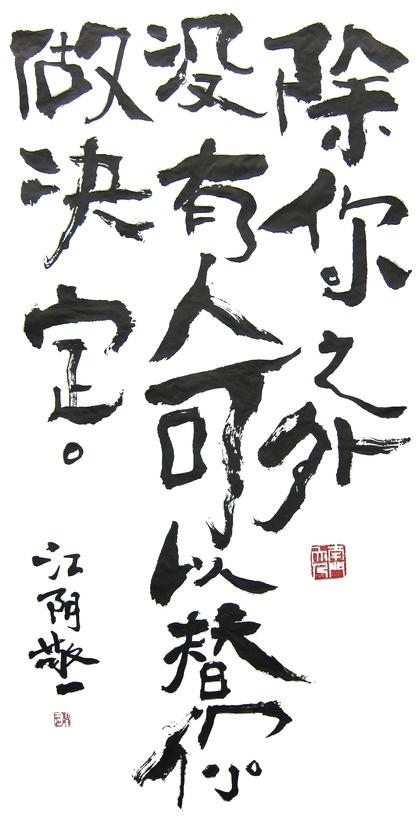 除你之外
没有人可以替你
做决定。
江阴敬一